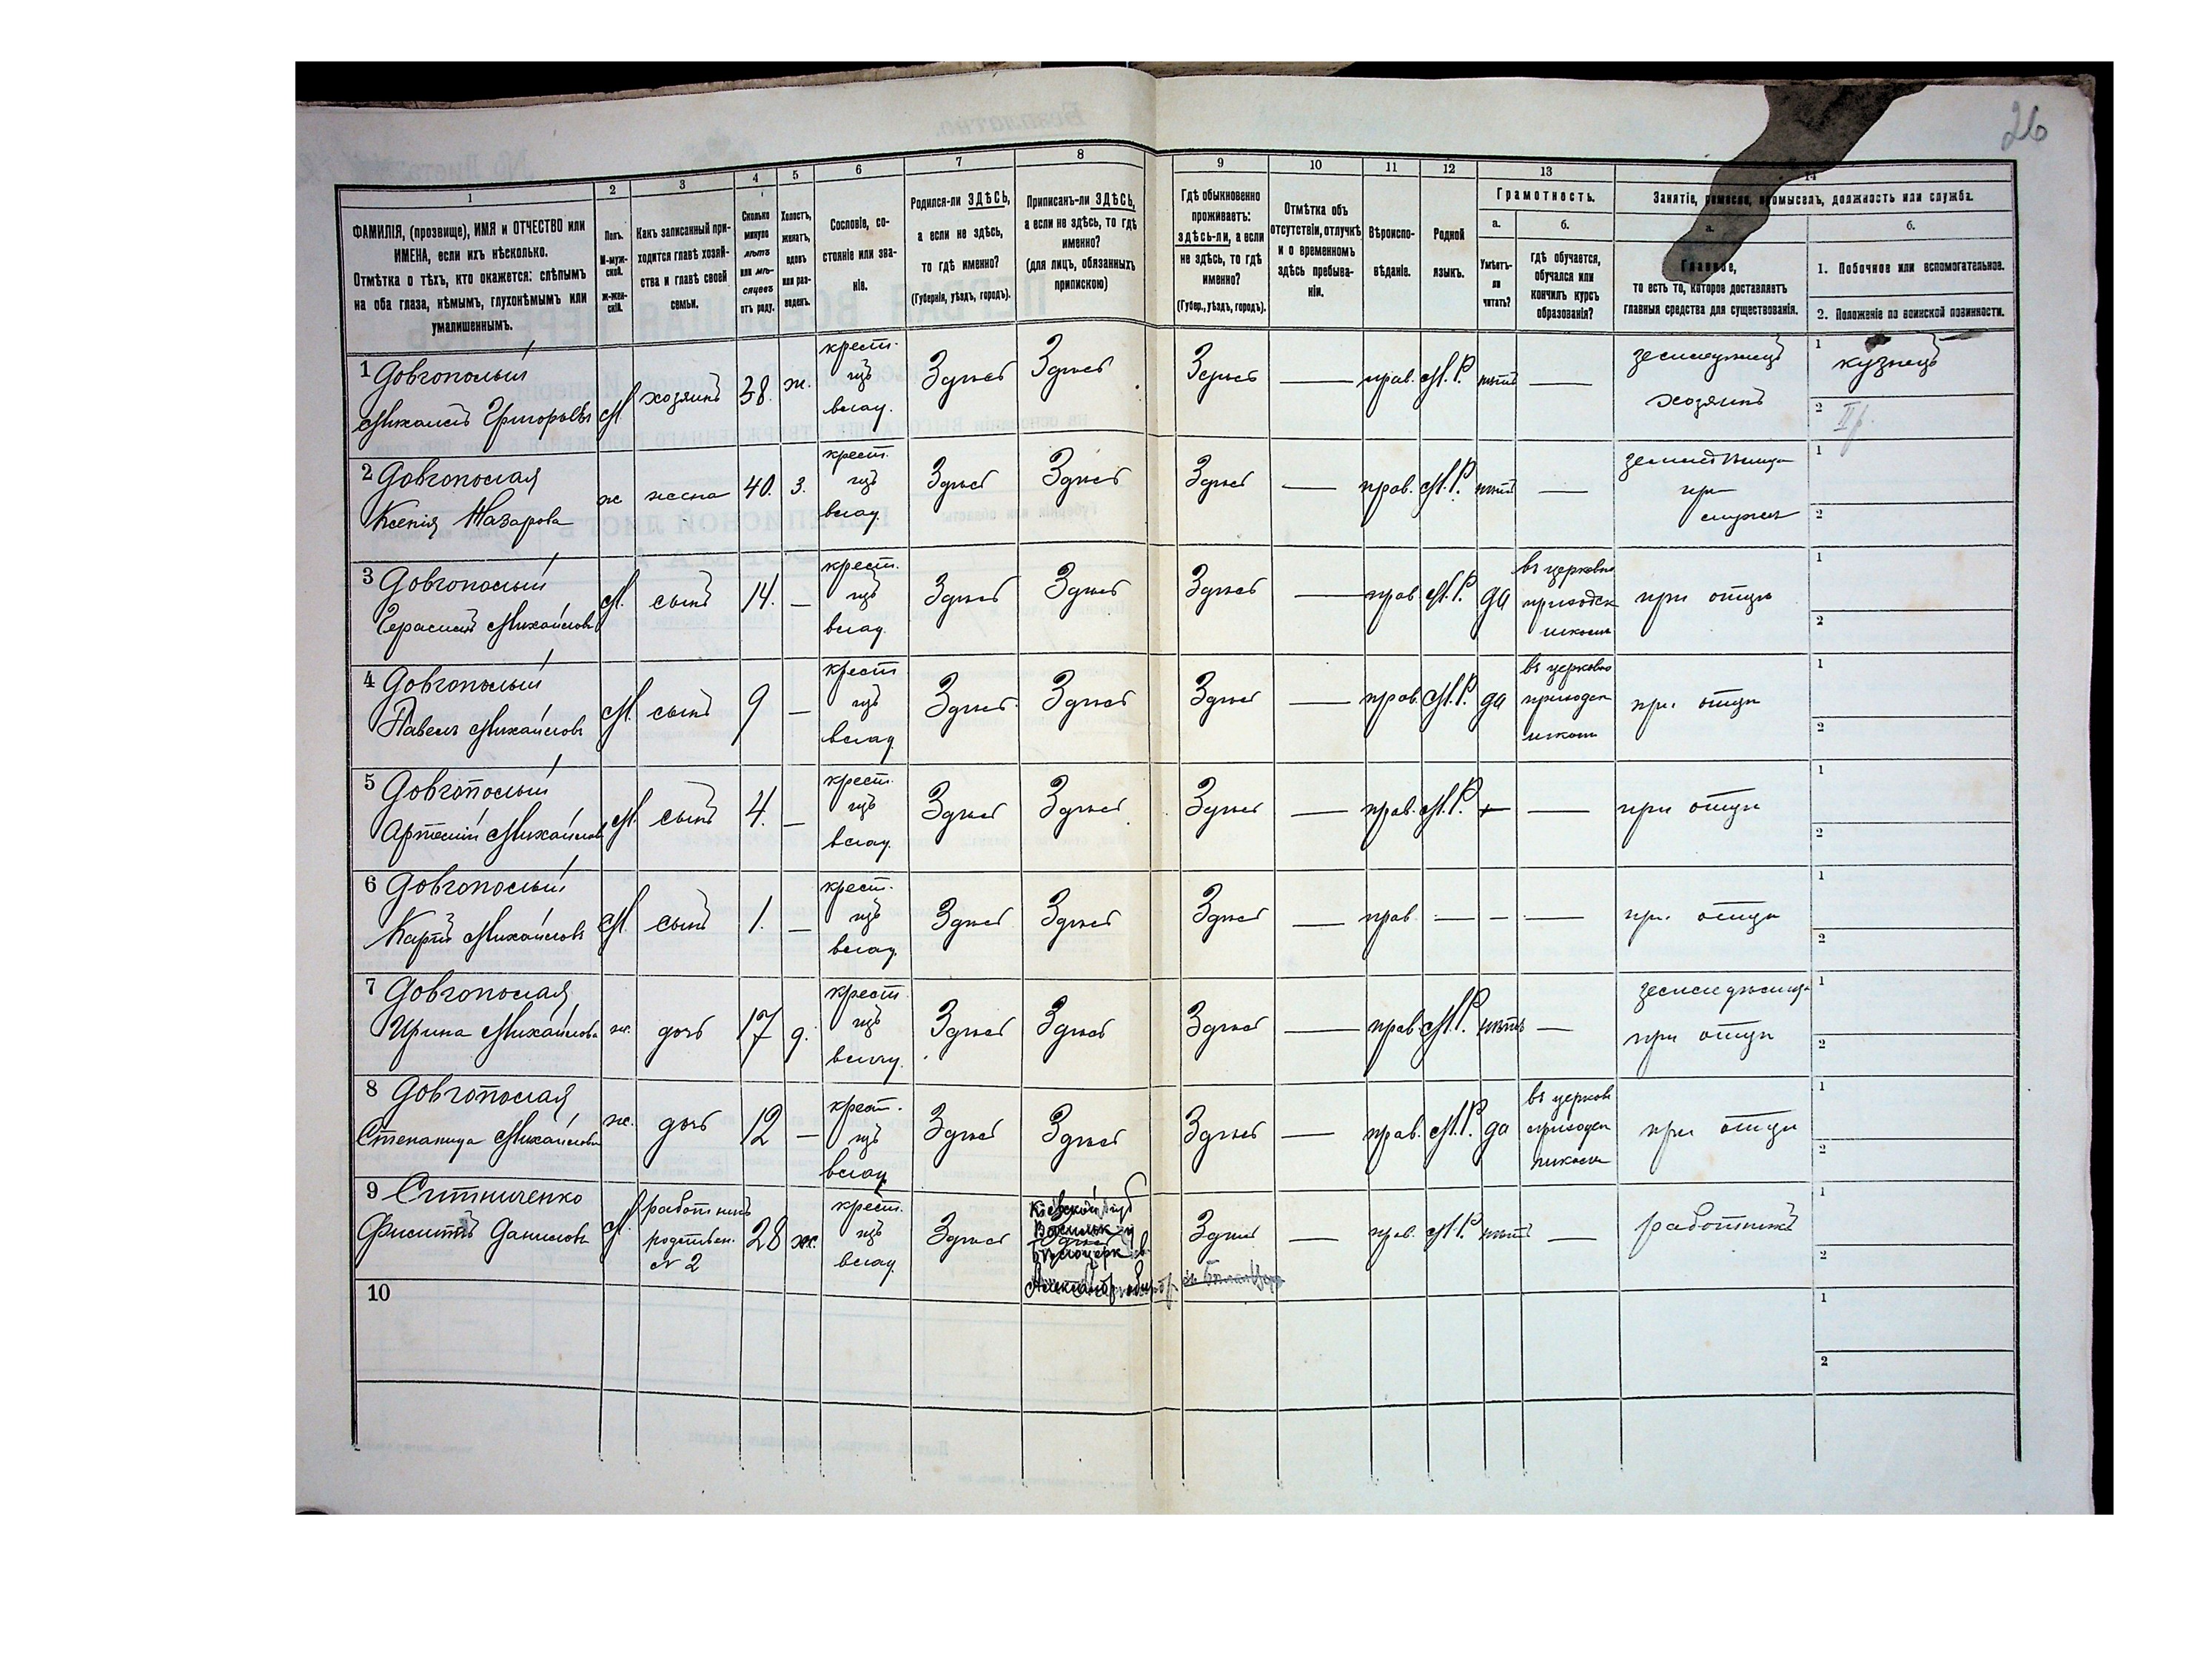 26
1 2 3 4 5 6 7 8 9 10 11 12 13 14
ФАМИЛІЯ, (прозвище), ИМЯ и ОТЧЕСТВО или
ИМЕНА, если ихъ нѣсколько.
Отмѣтка о тѣхъ, кто окажется: слѣпымъ
на оба глаза, нѣмымъ, глухонѣмымъ или
умалишеннымъ.
Полъ.
М-муж-
ской.
ж-жен-
скій.
Какъ записанный при-
ходится главѣ хозяй-
ства и главѣ своей
семьи.
Сколько
минуло
лѣтъ
или мѣ-
сяцевъ
отъ роду.
Холостъ,
женатъ,
вдовъ
или раз-
веденъ.
Сословіе, со-
стояніе или зва-
ніе.
Родился-ли ЗДѢСЬ,
а если не здѣсь,
то гдѣ именно?
(Губернія, уѣздъ, городъ).
Приписанъ-ли ЗДѢСЬ,
а если не здѣсь, то гдѣ
именно?
(для лицъ, обязанныхъ
припискою)
Гдѣ обыкновенно
проживаетъ:
здѣсь-ли, а если
не здѣсь, то гдѣ
именно?
(Губер., уѣздъ, городъ).
Отмѣтка объ
отсутствіи, отлучкѣ
и о временномъ
здѣсь пребыва-
ніи.
Вѣроиспо-
вѣданіе.
Родной
языкъ.
Грамотность.
а.
Умѣетъ-
ли
читать?
б.
гдѣ обучается,
обучался или
кончилъ курсъ
образованія?
Занятіе, ремесло, промыселъ, должность или служба.
а.
Главное,
то есть то, которое доставляетъ
главныя средства для существованія.
б.
1. Побочное или вспомогательное.
2. Положеніе по воинской повинности.
1 Довгополый
Михаилъ Григорьевъ М хозяинъ 38. ж. крест. изъ влад. Здѣсь Здѣсь Здѣсь — прав. М.Р. нѣтъ — земледѣлецъ хозяинъ
1 кузнецъ
2 II р.
2 Довгополая
Ксенія Назарова ж жена 40. з. крест. изъ влад. Здѣсь Здѣсь Здѣсь — прав. М.Р. нѣтъ — при мужѣ
1
2
3 Довгополый
Герасимъ Михайловъ М. сынъ 14. — крест. изъ влад. Здѣсь Здѣсь Здѣсь — прав. М.Р. да въ церковно приходск школѣ при отцѣ
1
2
4 Довгополый
Павелъ Михайловъ М. сынъ 9 — крест изъ влад. Здѣсь Здѣсь Здѣсь — прав. М.Р. да въ церковно приходск школѣ при отцѣ
1
2
5 Довгополый
Артемій Михайловъ М. сынъ 4. — крест. изъ влад. Здѣсь Здѣсь Здѣсь — прав. М.Р. — — при отцѣ
1
2
6 Довгополый
Карпъ Михайловъ М. сынъ 1. — крест. изъ влад. Здѣсь Здѣсь Здѣсь — прав — — — при отцѣ
1
2
7 Довгополая
Ирина Михайлова ж. дочь 17 д. крест. изъ влад. Здѣсь Здѣсь Здѣсь — прав. М.Р. нѣтъ — при отцѣ
1
2
8 Довгополая
Степанида Михайлова ж. дочь 12 — крест. изъ влад. Здѣсь Здѣсь Здѣсь — прав. М.Р. да въ церков приходск школѣ при отцѣ
1
2
9 Ситниченко
Филиппъ Даниловъ М. работникъ родствен. N 2 28 ж. крест. изъ влад. Здѣсь Кіевской губ Здѣсь — прав. М.Р. нѣтъ — работникъ
1
2
10
1
2